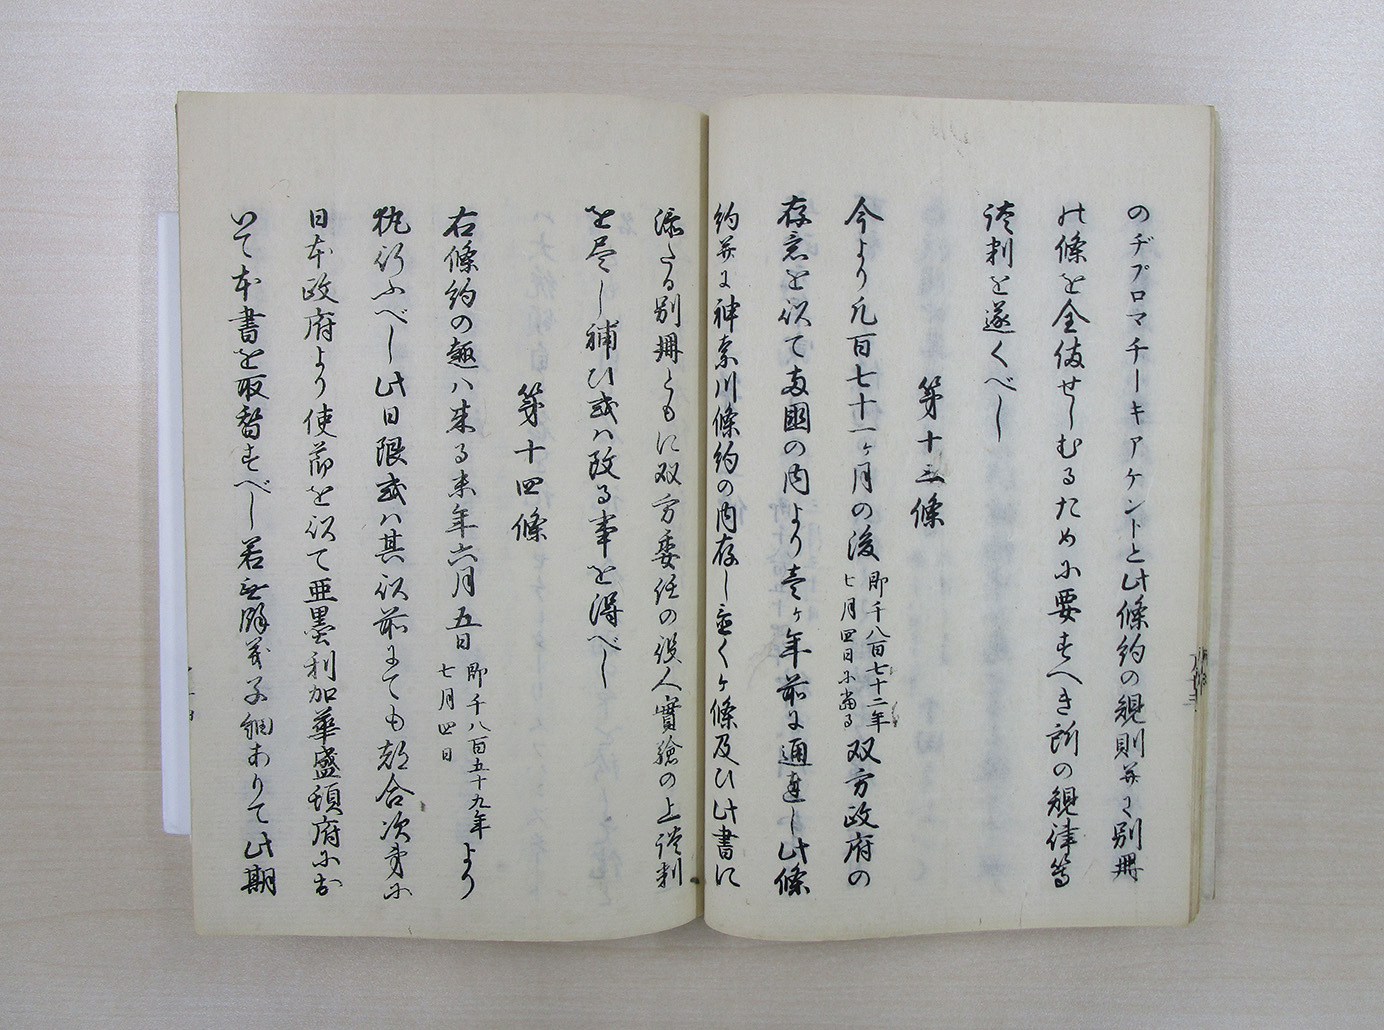 のヂプロマチーキアケントと此條約の規則并に別冊
の條を全備せしむるために要すへき所の規律等
談判を遂くべし
第十三條
今より凡百七十一ヶ月の後即千八百七十二年七月四日に當る双方政府の
存意を以て両國の内より壱ヶ年前に通達し此條
約并に神奈川條約の内存し置くヶ條及ひ此書に
添たる別冊ともに双方委任の役人實驗の上談判
を尽し補ひ或ハ改る事を得べし
第十四條
右條約の趣ハ来る未年六月五日即千八百五十九年七月四日より
執行ふべし此日限或ハ其以前にても都合次第に
日本政府より使節を以て亜墨利加華盛頓府にお
いて本書を取替すべし若無餘義子細ありて此期